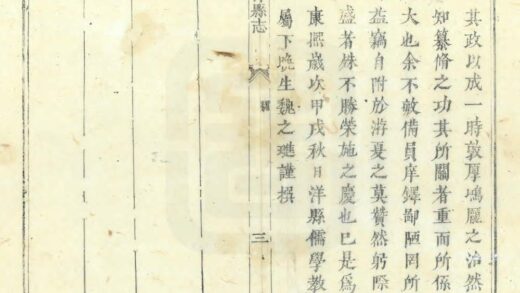 其政以成一時敦厚鴻龐之治然
知纂脩之功其所關者重而所係
大也余不敏備員庠鐸鄙陋罔所
益竊自附於游夏之莫贊然躬際
盛者殊不勝榮施之慶也已是爲
康熙歲次甲戌秋日洋縣儒學教
屬下晚生魏之璉謹撰
縣志
三